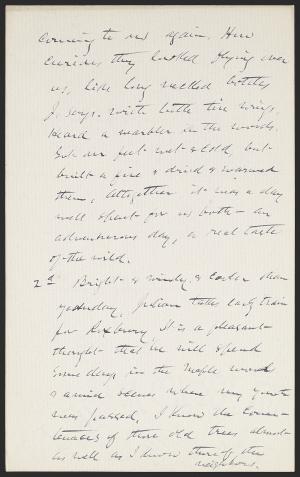 coming to us again. How
curious they looked flying over
us, like long necked bottles
J. says, with little tiny wings.
Heard a warbler in the woods.
Got our feet wet & cold, but
built a fire & dried & warmed
them, altogether it was a day
well spent for us both - an
adventurous day, a real taste
of the wild.
2d Bright & windy & cooler than
yesterday, Julian takes early train
for Roxbury. It is a pleasant
thought that he will spend
some days in the maple woods
& amid scenes where my youth
was passed, I know the coun-
tenances of those old trees almost
as well as I know those of the
neighbors.